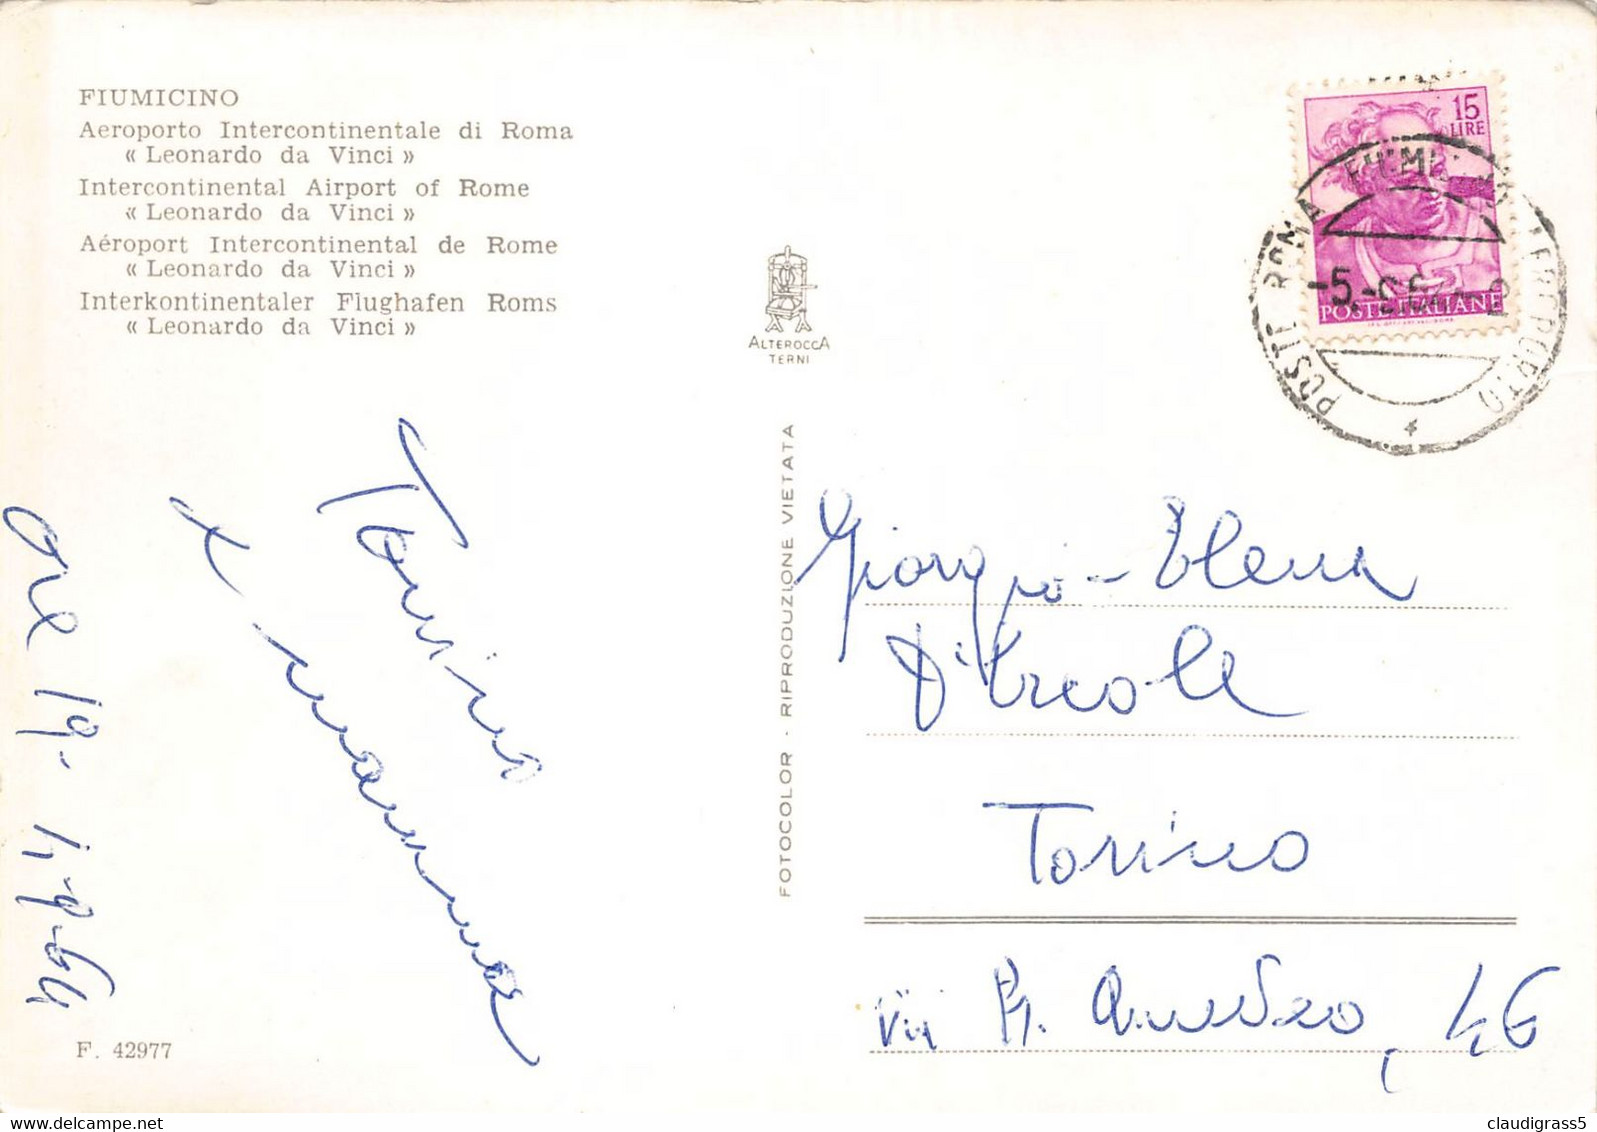 FIUMICINO
Aeroporto Intercontinentale di Roma
« Leonardo da Vinci »
Intercontinental Airport of Rome
« Leonardo da Vinci »
Aéroport Intercontinental de Rome
« Leonardo da Vinci »
Interkontinentaler Flughafen Roms
« Leonardo da Vinci »
ore 19. 4.9.64
F. 42977
ALTEROCCA
TERNI
FOTOCOLOR - RIPRODUZIONE VIETATA
15
LIRE
POSTE ITALIANE
POSTE ROMA FIUMICINO AEROPORTO
-5.
Giorgio - Elena
D'Ercole
Torino
Via Pr. Amedeo, 46
claudigrass5